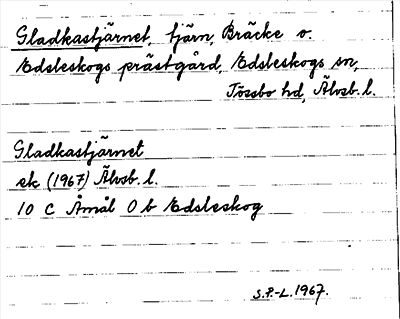 Gladkastjärnet, tjärn, Bräcke o.
Edsleskogs prästgård, Edsleskogs sn,
Tössbo hd, Älvsb. l.
Gladkastjärnet
ek (1967) Älvsb. l.
10 C Åmål 0 b Edsleskog
S.P.-L. 1967.